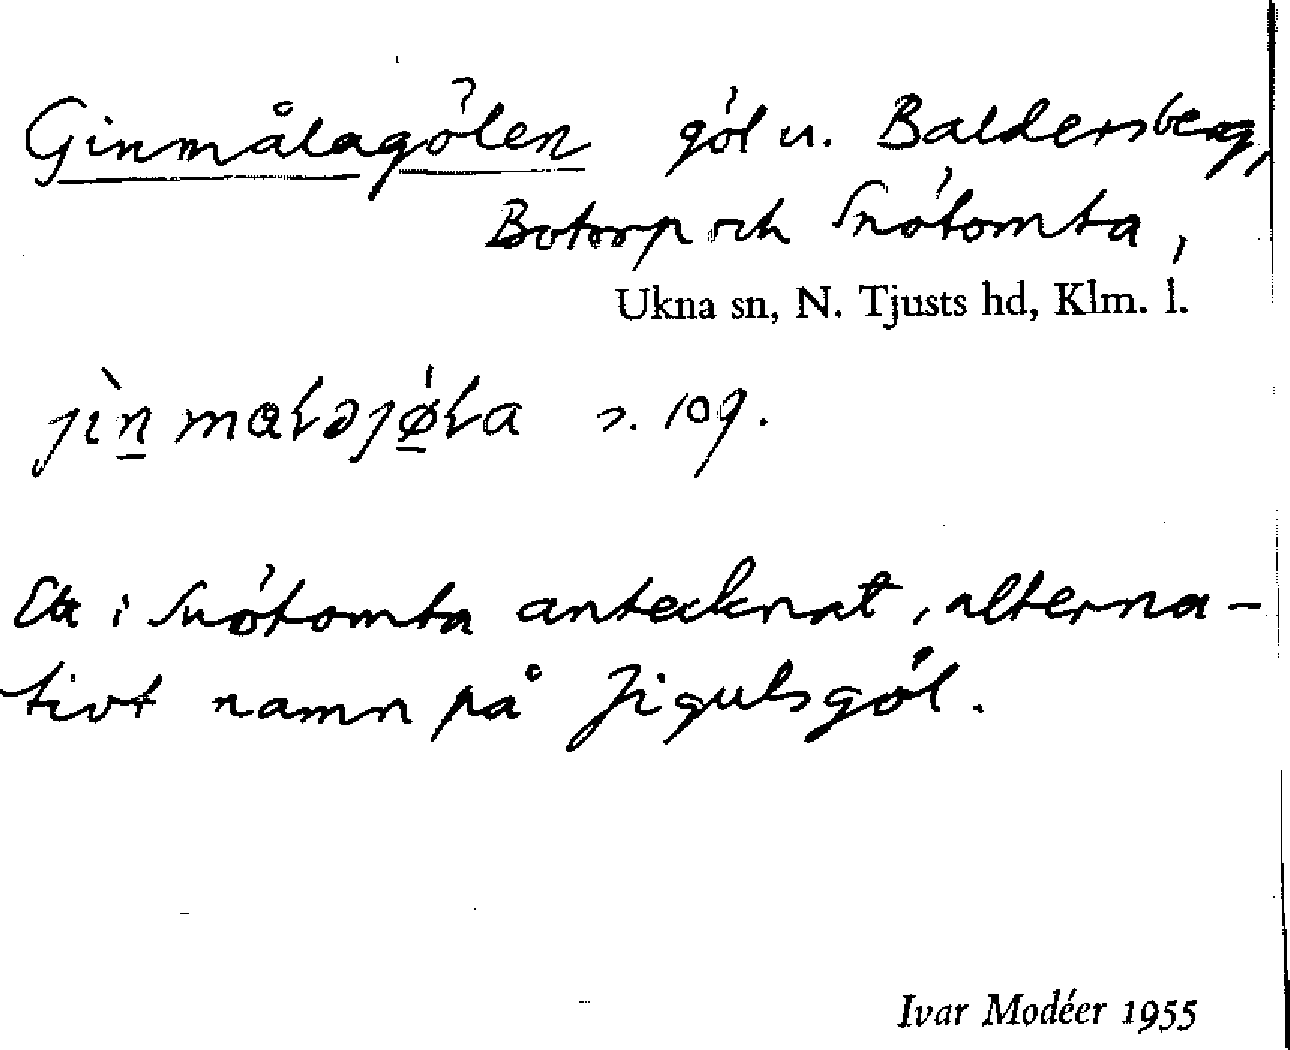 Ginmålagölen göl u. Baldersberg,
Botorp och Snötomta,
Ukna sn, N. Tjusts hd, Klm. l.
s. 109.
i Snötomta antecknat, alterna-
tivt namn på Jigulsgöl.
Ivar Modéer 1955